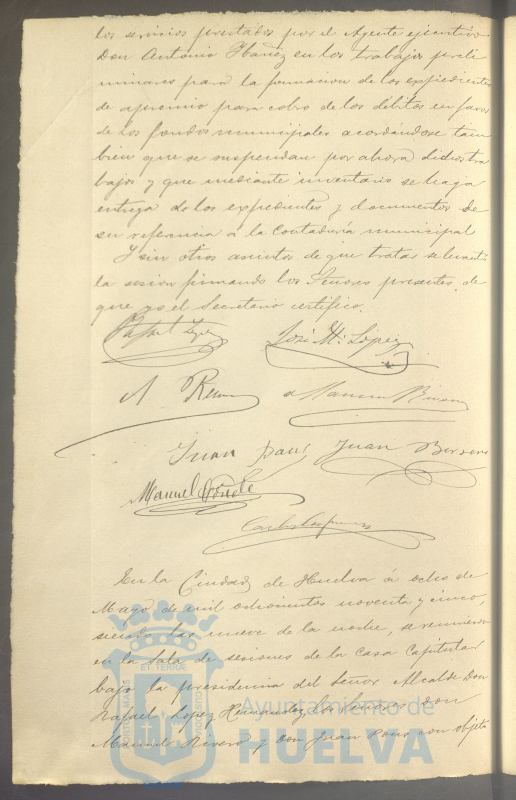 los servicios prestados por el Agente ejecutivo
Don Antonio Ibañez en los trabajos preli
minares para la formacion de los expedientes
de apremio para cobro de los débitos en favor
de los fondos municipales acordándose tam
bien que se suspendan por ahora dichos tra
bajos y que mediante inventario se haga
entrega de los expedientes y documentos de
su referencia á la Contaduría municipal
Y sin otros asuntos de que tratar se levantó
la sesion firmando los Señores presentes, de
que yo el Secretario certifico.
Rafael Lopez
José M. López
Manuel Rivero
Juan Pons
Juan
Manuel
En la Ciudad de Huelva á ocho de
Mayo de mil ochocientos noventa y cinco,
siendo las nueve de la noche, se reunieron
en la Sala de sesiones de la casa Capitular
bajo la presidencia del Señor Alcalde Don
Rafael López Hernandez, los Señores Don
Manuel Rivero y Don Juan Pons con objeto
Ayuntamiento de
HUELVA